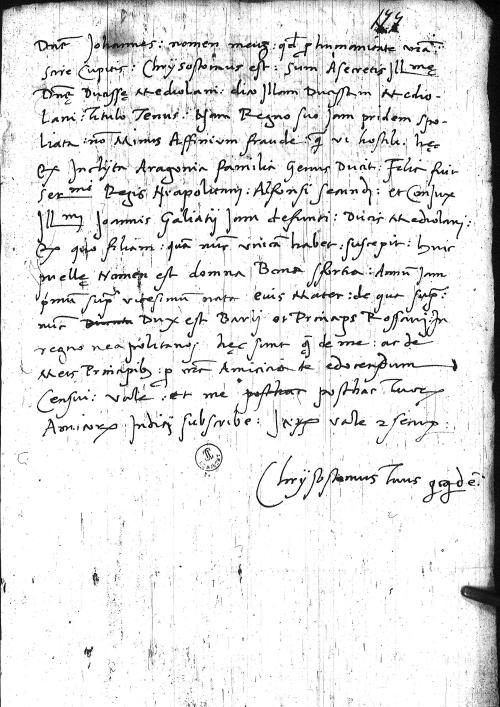 Dne Johannes: nomen meuz: qd p humanitate vra:
scire Cupitis: Chrysostomus est: sum Asecretis Illme
Dne Ducisse Mediolani: dico Illam Ducissam Medio-
Lani: titulo Tenus: Nam Regno suo iam pridem spo-
liata: non Minus Affinium fraude: q vi hostili: hec
ex Inclyta Aragonia familia Genus Ducit: Felic fuit
Sermi Regis Neapolitani: Alfonsi secundi: et Conjux
Illmi Joannis Galiatij Jam defuncti: Ducis Mediolani:
ex quo filiam: qua nunc unica habet: suscepit: huic
puelle Nomen est domna Bona sfortia: Annu Jam
pmu sup vicesimum nata eius Mater: de qua sup:
nuc Dux est Barij et Princeps Rossani: In
regno neapolitano: hec sunt q de me: ac de
Meis Principibus: p vra Amicicia te edocendum
Censui: vale: et me posthac posthac tuorx
Amicorx Indici subscribe: vale 2 semp:
Chrysostomus tuus